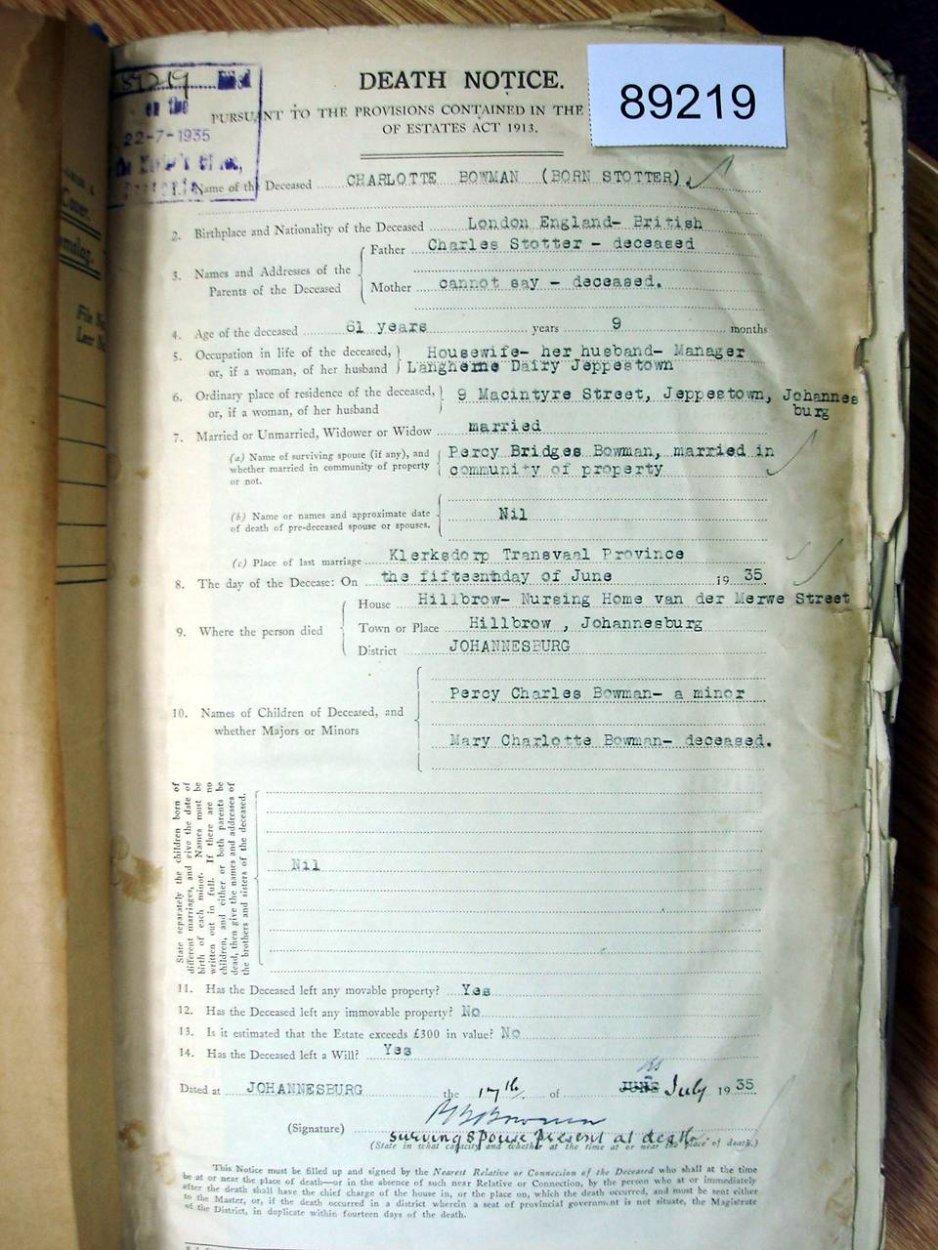 89219
DEATH NOTICE.
PURSUANT TO THE PROVISIONS CONTAINED IN THE
OF ESTATES ACT 1913.
89219
on the
22-7-1935
Name of the Deceased CHARLOTTE BOWMAN (BORN STOTTER).
2. Birthplace and Nationality of the Deceased London England- British
3. Names and Addresses of the Parents of the Deceased
Father Charles Stotter - deceased
Mother cannot say - deceased.
4. Age of the deceased 61 years years 9 months
5. Occupation in life of the deceased, Housewife- her husband- Manager
or, if a woman, of her husband Langherne Dairy Jeppestown
6. Ordinary place of residence of the deceased, 9 Macintyre Street, Jeppestown, Johannes
or, if a woman, of her husband burg
7. Married or Unmarried, Widower or Widow married
(a) Name of surviving spouse (if any), and Percy Bridges Bowman, married in
whether married in community of property community of property
or not.
(b) Name or names and approximate date Nil
of death of pre-deceased spouse or spouses.
(c) Place of last marriage Klerksdorp Transvaal Province
8. The day of the Decease: On the fifteenthday of June 19 35.
House Hillbrow- Nursing Home van der Merwe Street
9. Where the person died Town or Place Hillbrow , Johannesburg
District JOHANNESBURG
Percy Charles Bowman- a minor
10. Names of Children of Deceased, and
whether Majors or Minors
Mary Charlotte Bowman- deceased.
State separately the children born of
different marriages, and give the date of
birth of each minor. Names must be
written out in full. If there are no
children, and either or both parents be
dead, then give the names and addresses of
the brothers and sisters of the deceased.
Nil
11. Has the Deceased left any movable property? Yes
12. Has the Deceased left any immovable property? No
13. Is it estimated that the Estate exceeds £300 in value? No
14. Has the Deceased left a Will? Yes
Dated at JOHANNESBURG the 17th of JUNE July 19 35
(Signature) Bowman
surviving spouse present at death.
(State in what capacity and whether at the time at or near the place of death.)
This Notice must be filled up and signed by the Nearest Relative or Connection of the Deceased who shall at the time
be at or near the place of death—or in the absence of such near Relative or Connection, by the person who at or immediately
after the death shall have the chief charge of the house in, or the place on, which the death occurred, and must be sent either
to the Master, or, if the death occurred in a district wherein a seat of provincial government is not situate, the Magistrate
of the District, in duplicate within fourteen days of the death.